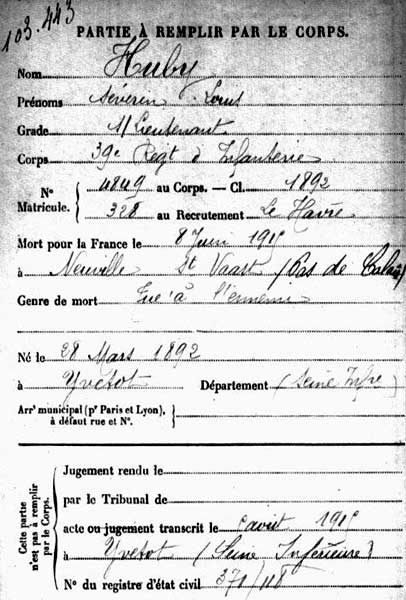 103.443
PARTIE À REMPLIR PAR LE CORPS.
Nom Huby
Prénoms Séverin Louis
Grade S/Lieutenant
Corps 39e Regt d'Infanterie
No Matricule. { 4849 au Corps. — Cl. 1892
328 au Recrutement Le Havre
Mort pour la France le 8 Juin 1915
à Neuville St Vaast (Pas de Calais)
Genre de mort Tué à l'ennemi
Né le 28 Mars 1892
à Yvetot Département (Seine Infre)
Arrt municipal (pr Paris et Lyon), à défaut rue et No. }
Cette partie n'est pas à remplir par le Corps.
Jugement rendu le
par le Tribunal de
acte ou jugement transcrit le août 1915
à Yvetot (Seine Inférieure)
No du registre d'état civil 371/118